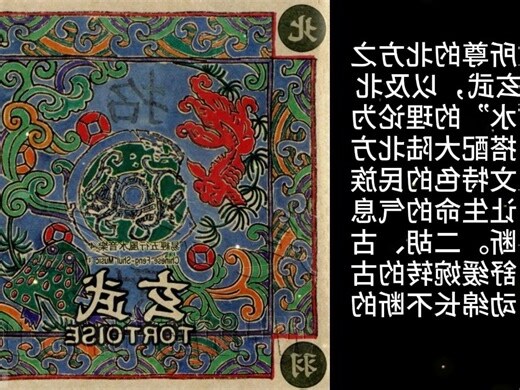 所尊的北方之
玄武，以及北
水”的理论为
搭配大陆北方
文特色的民族
让生命的气息
断。二胡、古
舒缓婉转的古
动绵长不断的
北
招
易經五行風水音樂
Chinese Feng-Shui Music
玄武
TORTOISE
羽